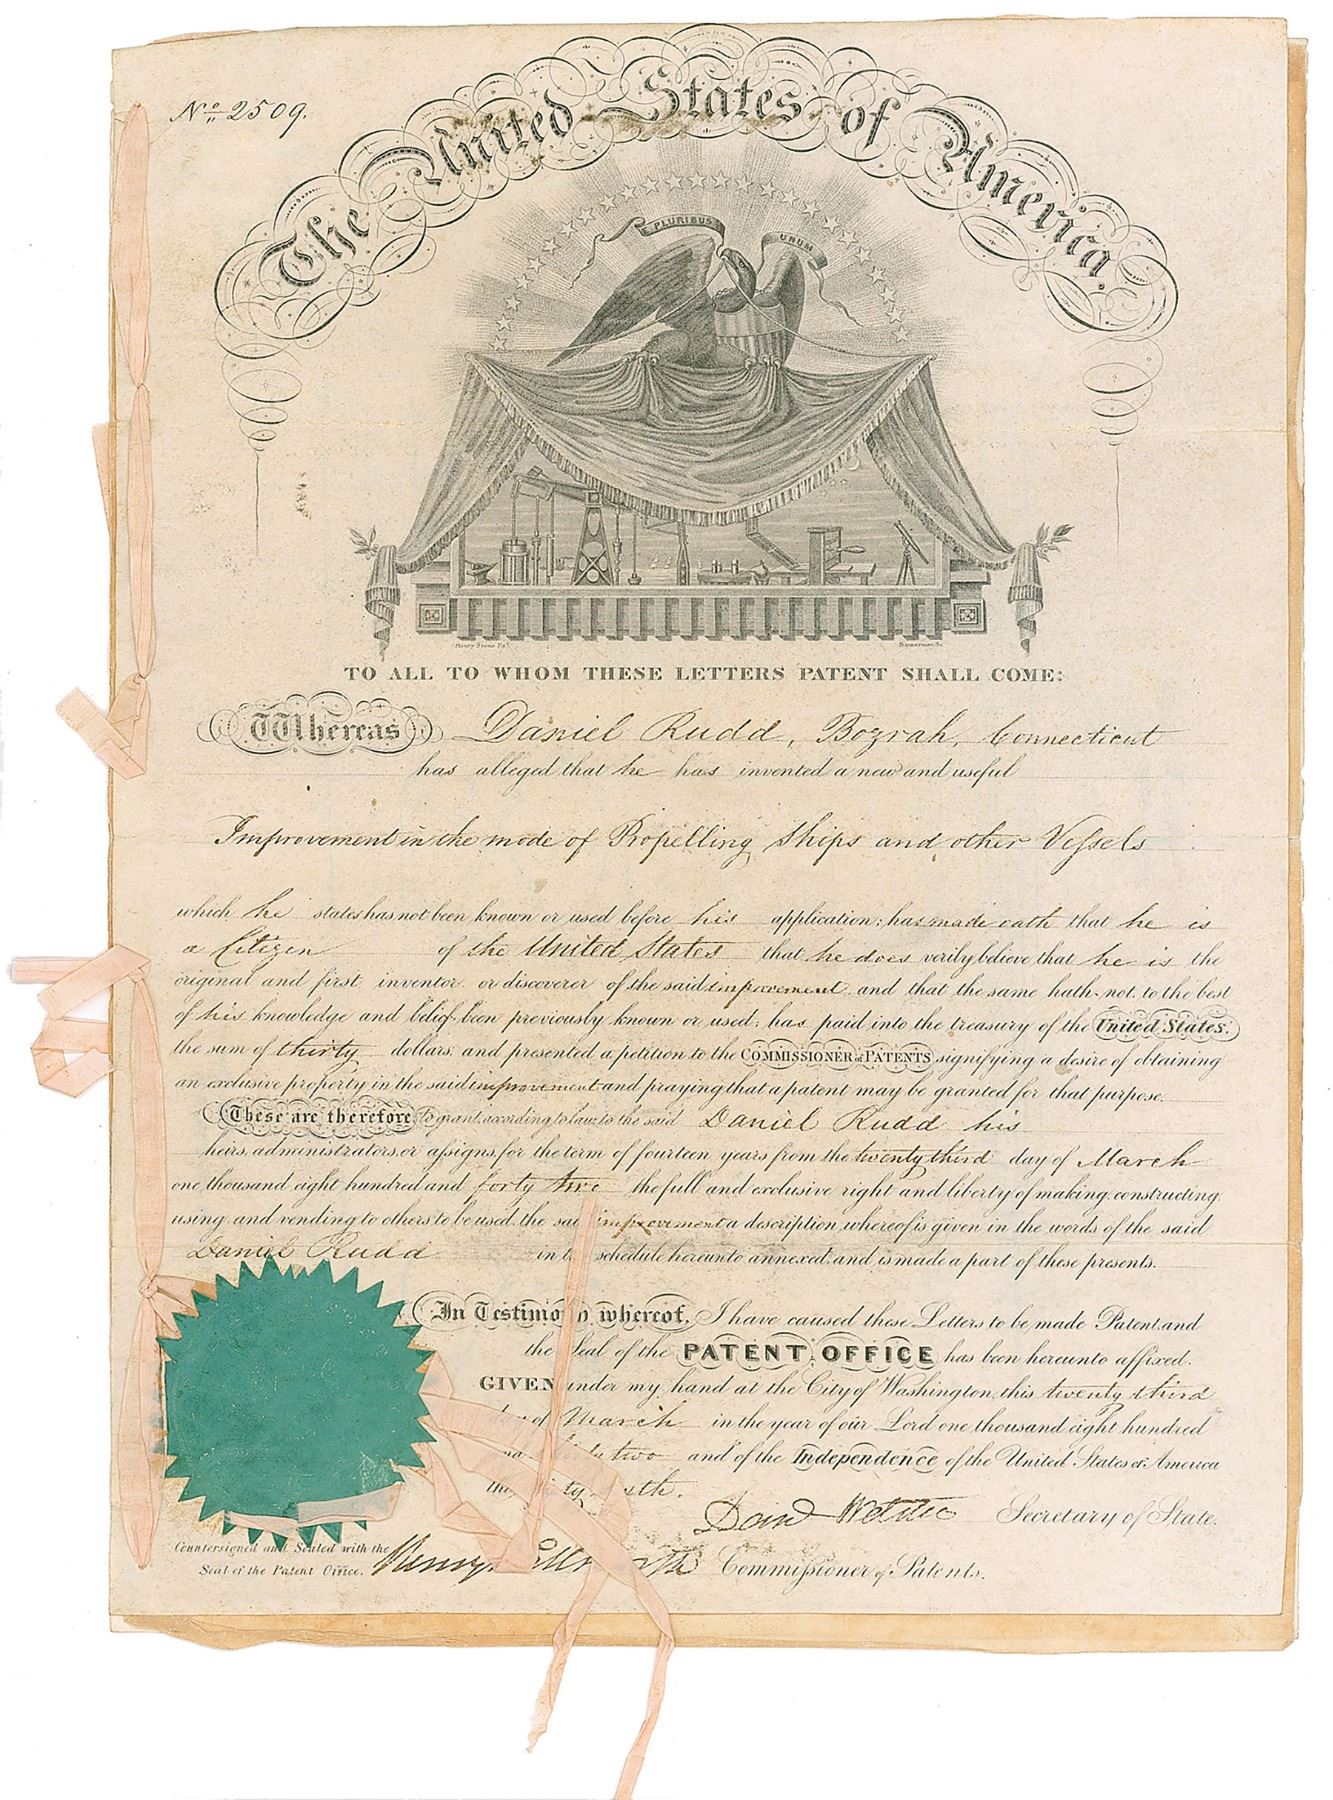 No. 2509.
The United States of America
E PLURIBUS UNUM
Henry Stone Del.
TO ALL TO WHOM THESE LETTERS PATENT SHALL COME:
Whereas Daniel Rudd, Bozrah, Connecticut
has alleged that he has invented a new and useful
Improvement in the mode of Propelling Ships and other Vessels
which he states has not been known or used before his application; has made oath that he is
a Citizen of the United States that he does verily believe that he is the
original and first inventor or discoverer of the said improvement and that the same hath not, to the best
of his knowledge and belief, been previously known or used; has paid into the treasury of the United States,
the sum of thirty dollars, and presented a petition to the COMMISSIONER of PATENTS signifying a desire of obtaining
an exclusive property in the said improvement and praying that a patent may be granted for that purpose.
These are therefore to grant, according to law, to the said Daniel Rudd his
heirs, administrators, or assigns, for the term of fourteen years from the twenty third day of March
one thousand eight hundred and forty two the full and exclusive right and liberty of making, constructing,
using, and vending to others to be used, the said improvement a description whereof is given in the words of the said
Daniel Rudd in the schedule hereunto annexed, and is made a part of these presents.
In Testimony whereof, I have caused these Letters to be made Patent and
the Seal of the PATENT OFFICE has been hereunto affixed.
GIVEN under my hand at the City of Washington, this twenty third
day of March in the year of our Lord one thousand eight hundred
and forty two and of the Independence of the United States of America
the sixty sixth.
Danl Webster Secretary of State.
Countersigned and Sealed with the
Seal of the Patent Office. Henry Ellsworth Commissioner of Patents.